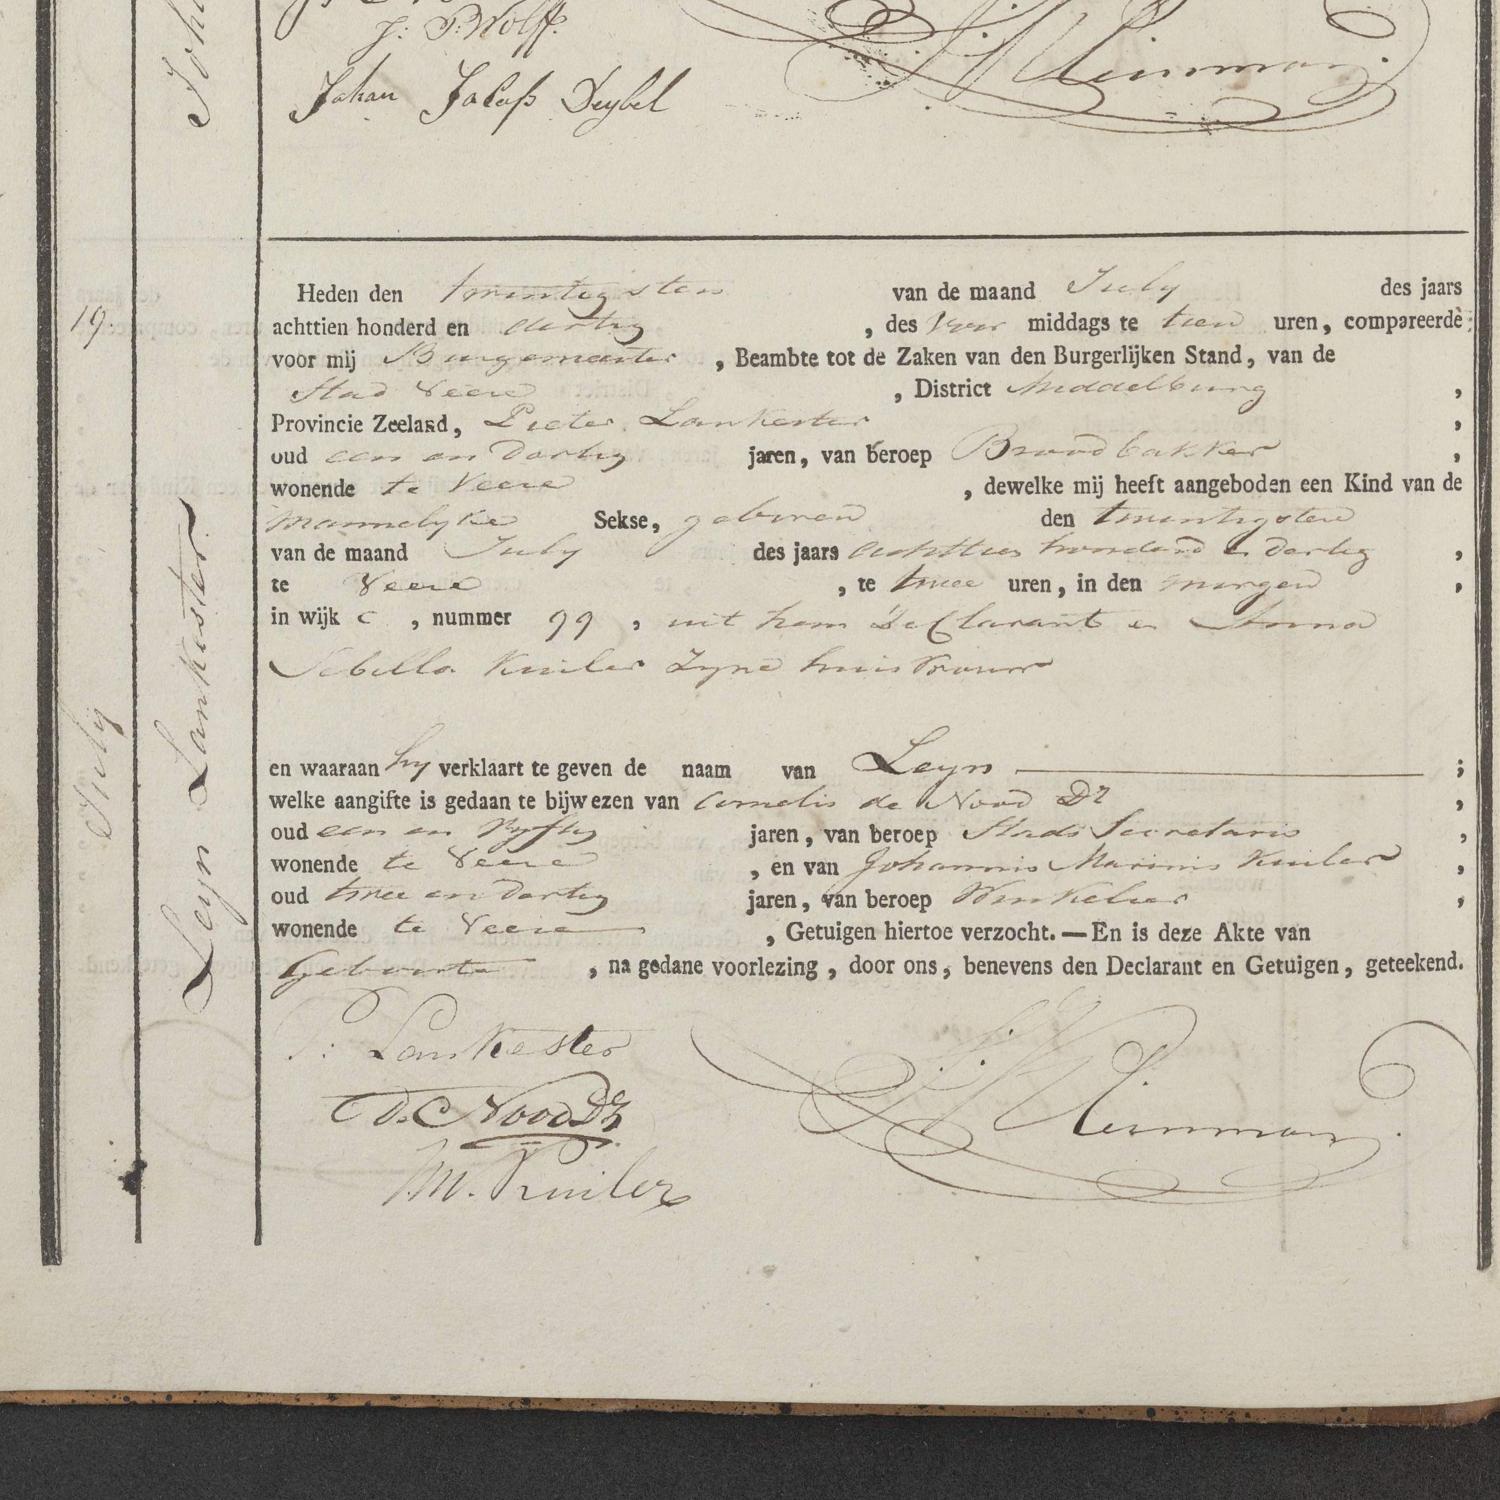 J: P: Wolff.
Johan Jacob Deybel
Kleinman.
Heden den twintigsten van de maand July des jaars
19. achttien honderd en dertig, des voor middags te tien uren, compareerde
voor mij Burgemeester, Beambte tot de Zaken van den Burgerlijken Stand, van de
Stad Veere, District Middelburg,
Provincie Zeeland, Pieter Lankester,
oud een en dertig jaren, van beroep Broodbakker,
wonende te Veere, dewelke mij heeft aangeboden een Kind van de
mannelyke Sekse, geboren den twintigsten
van de maand July des jaars achttien honderd en dertig,
te Veere, te twee uren, in den morgen,
in wijk C, nummer 99, uit hem Declarant en Anna
Sebilla Kuiler Zyne huisvrouw
en waaraan hy verklaart te geven de naam van Leyn ;
welke aangifte is gedaan te bijwezen van Cornelis de Nood Dz,
oud een en vyftig jaren, van beroep Stads Secretaris,
wonende te Veere, en van Johannis Marinis Kuiler,
oud twee en dertig jaren, van beroep Winkelier,
wonende te Veere, Getuigen hiertoe verzocht. — En is deze Akte van
Geboorte, na gedane voorlezing, door ons, benevens den Declarant en Getuigen, geteekend.
July
Leyn Lankester
P: Lankester
Nood Dz
M. Kuiler
Kleinman.